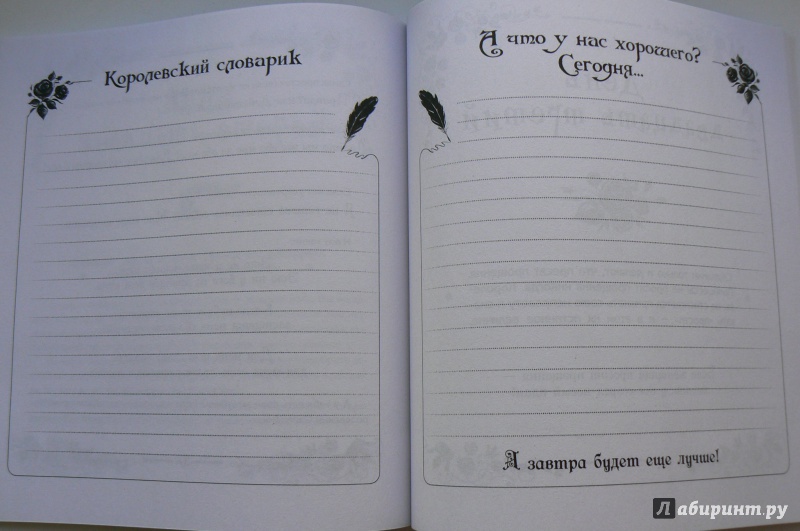 Королевский словарик
А что у нас хорошего?
Сегодня...
А завтра будет еще лучше!
Лабиринт.ру